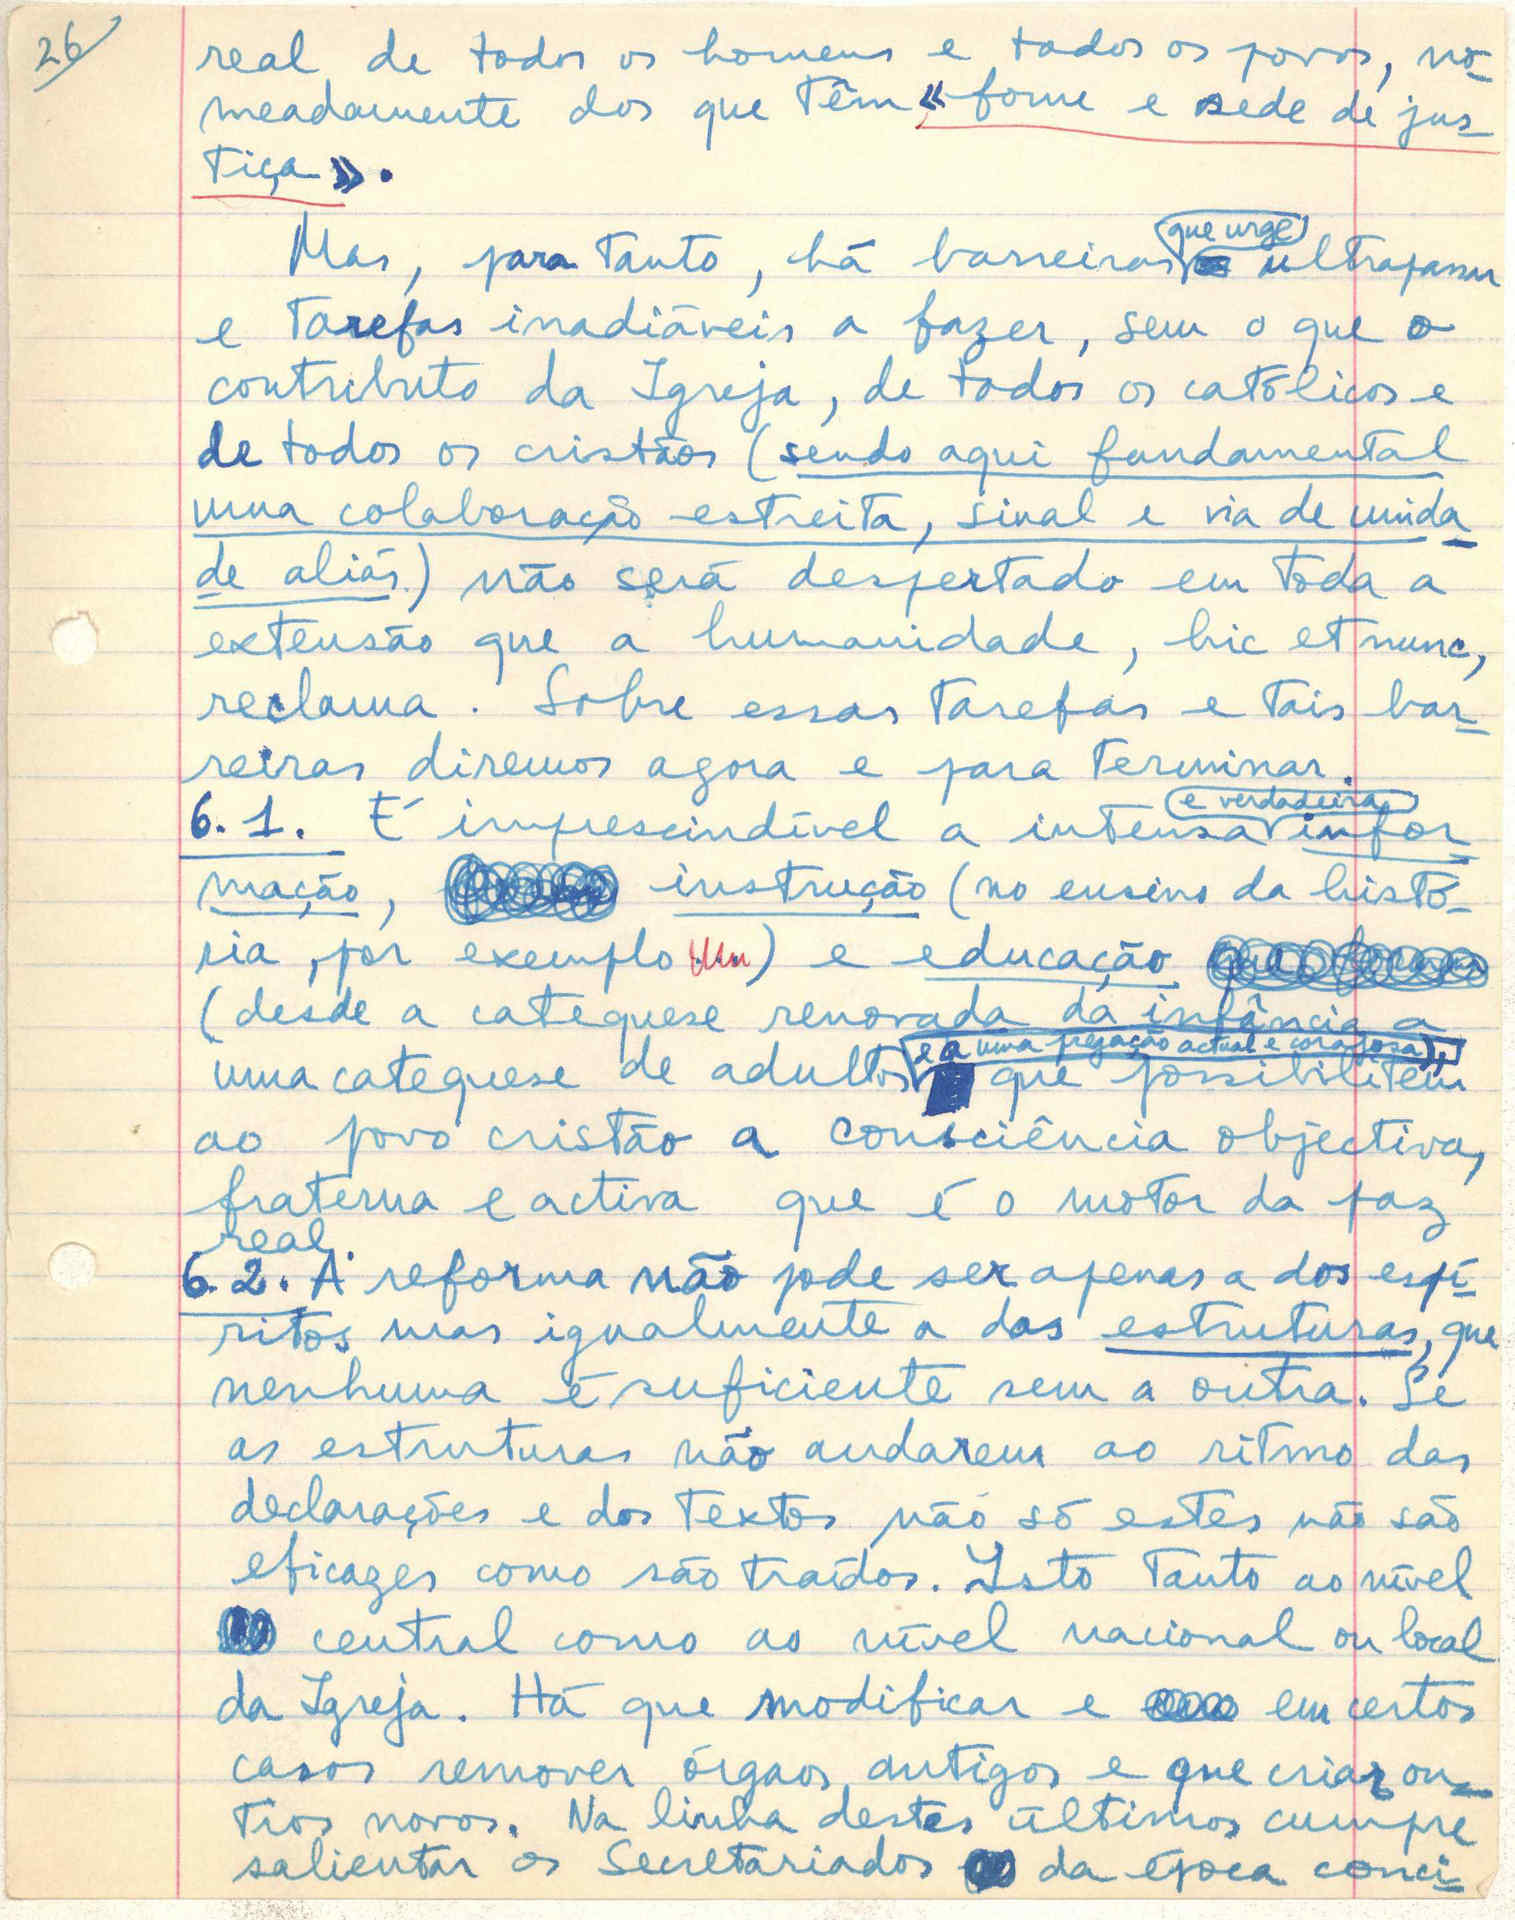 26
real de todos os homens e todos os povos, no-
meadamente dos que têm «fome e sede de jus-
tiça».
Mas, para tanto, há barreiras que urge ultrapassar
e tarefas inadiáveis a fazer, sem o que o
contributo da Igreja, de todos os católicos e
de todos os cristãos (sendo aqui fundamental
uma colaboração estreita, sinal e via de unida-
de aliás) não será despertado em toda a
extensão que a humanidade, hic et nunc,
reclama. Sobre essas tarefas e tais bar-
reiras diremos agora e para terminar.
6.1. É imprescindível a intensa e verdadeira infor-
mação, instrução (no ensino da histó-
ria, por exemplo) e educação
(desde a catequese renovada da infância a
uma catequese de adultos e a uma pregação actual e corajosa), que possibilitem
ao povo cristão a consciência objectiva,
fraterna e activa que é o motor da paz
real.
6.2. A reforma não pode ser apenas a dos espí-
ritos mas igualmente a das estruturas, que
nenhuma é suficiente sem a outra. Se
as estruturas não andarem ao ritmo das
declarações e dos textos não só estes não são
eficazes como são traídos. Isto tanto ao nível
central como ao nível nacional ou local
da Igreja. Há que modificar e em certos
casos remover órgãos antigos e que criar ou-
tros novos. Na linha destes últimos cumpre
salientar os Secretariados da época conci-